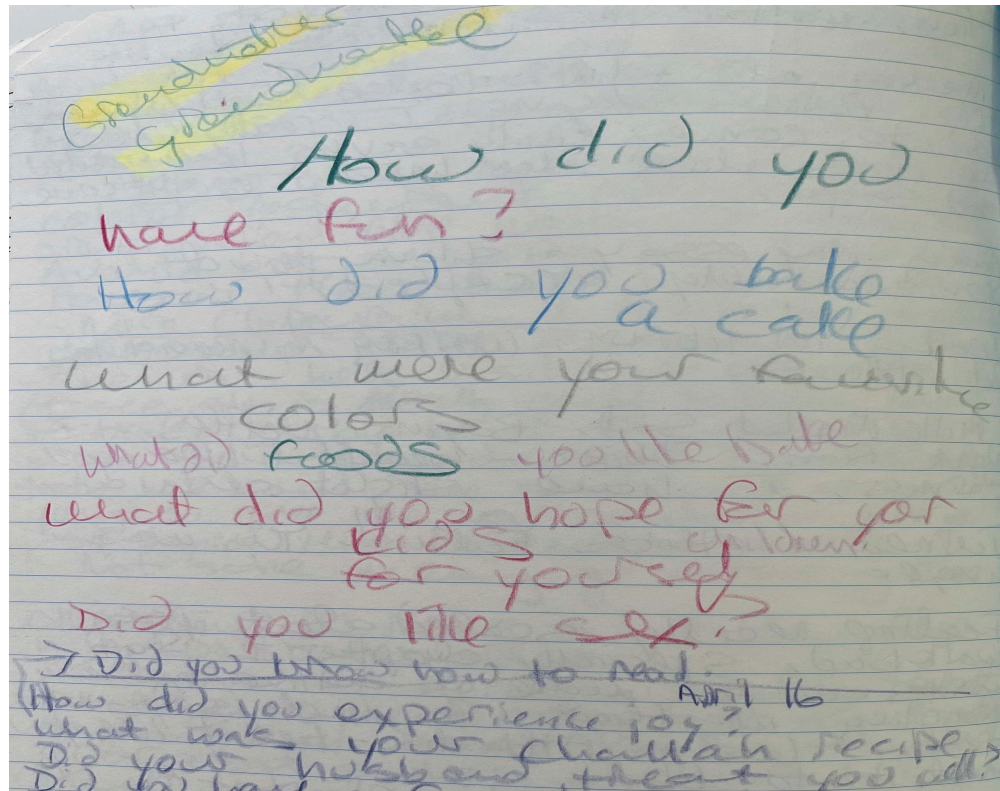 Grandmother
Grandmother
How did you
have fun?
How did you bake
a cake
What were your favorite
colors
What did foods you like bake
What did you hope for your
kids children?
for yourself
Did you like sex?
→ Did you know how to read.
April 16
(How did you experience joy?
What was your challah recipe
Did your husband treat you well?
Did you have